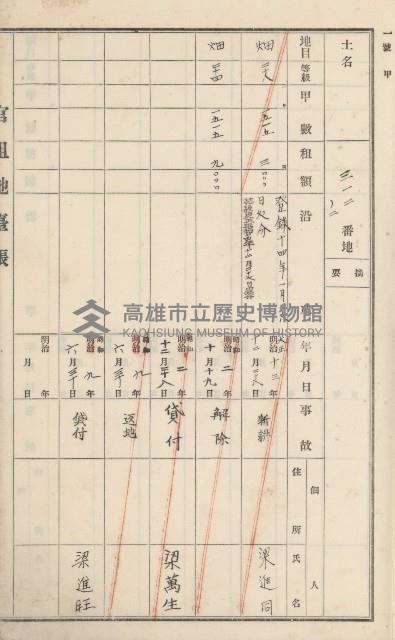 一號甲
土名
三一二ノ二
番地
摘要
地目
等級
甲數
租額
沿革
年月日
事故
個人
住所
氏名
畑
一五一五
三〇〇〇
登錄十四年一月
日処分
大正十三年
十二月二八日
新設
梁進同
畑
二四
一五一五
九〇〇〇
昭和
明治二年
十月十九日
解除
昭和
明治二年
十二月二八日
貸付
梁萬生
昭和
明治九年
六月三十日
返地
昭和
明治九年
六月三十日
貸付
梁進旺
明治
年
月
日
官租地臺帳
高雄市立歷史博物館
KAOHSIUNG MUSEUM OF HISTORY